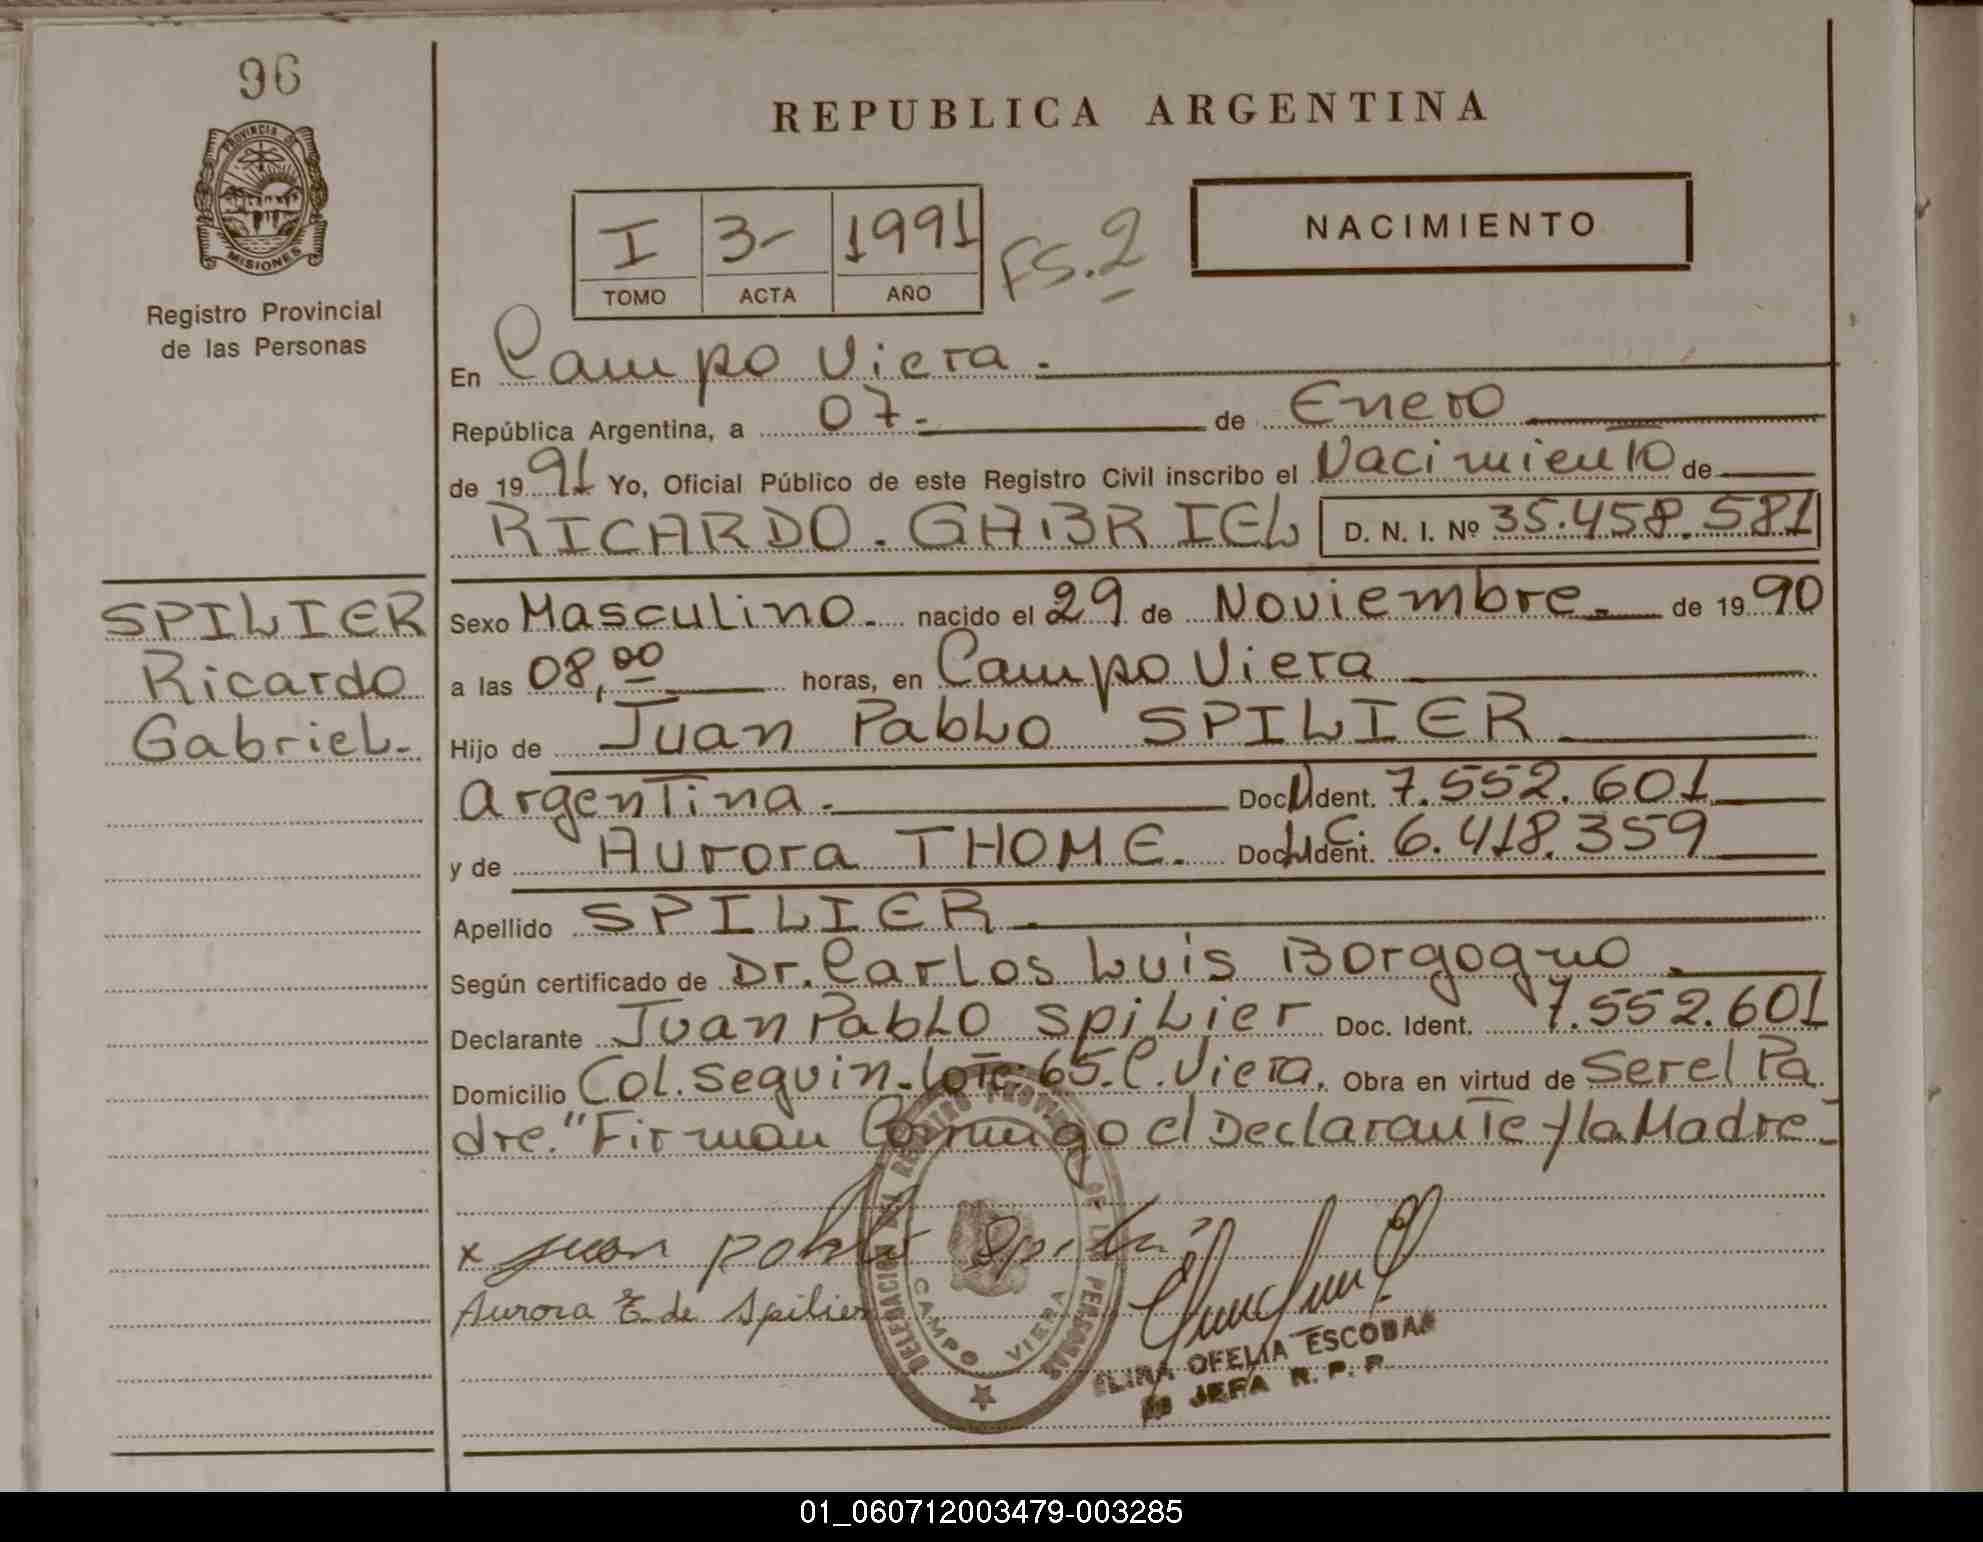 96
PROVINCIA DE
MISIONES
Registro Provincial
de las Personas
REPUBLICA ARGENTINA
I 3- 1991 FS.2
TOMO ACTA AÑO
NACIMIENTO
En Campo Viera.
República Argentina, a 07- de Enero
de 1991 Yo, Oficial Público de este Registro Civil inscribo el Nacimiento de
RICARDO. GABRIEL D. N. I. Nº 35.458.581
SPILIER
Ricardo
Gabriel-
Sexo Masculino. nacido el 29 de Noviembre. de 1990
a las 08,00 horas, en Campo Viera
Hijo de Juan Pablo SPILIER
argentina. Doc. Ident. 7.552.601
y de Aurora THOME. Doc. Ident. 6.418.359
Apellido SPILIER
Según certificado de Dr. Carlos Luis Borgogno
Declarante Juan Pablo Spilier Doc. Ident. 7.552.601
Domicilio Col. Seguin. Lote: 65. C. Viera. Obra en virtud de Ser el Pa
dre." Firman Conmigo el Declarante y la Madre-
x Juan pablo Spilier
Aurora E. de Spilier
DELEGACION DEL REGISTRO PROVINCIAL DE LAS PERSONAS
CAMPO VIERA
OFELIA ESCOBAR
JEFA R. P. P.
01_060712003479-003285